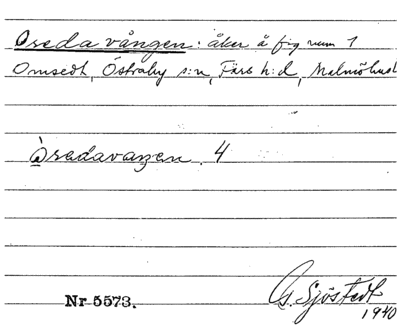 Oseda vången: åker å fig num 1
Onsedt, Östraby s:n, Färs h:d, Malmöhus l
Òsedavaŋen. 4
Nr 5573.
G. Sjöstedt
1940